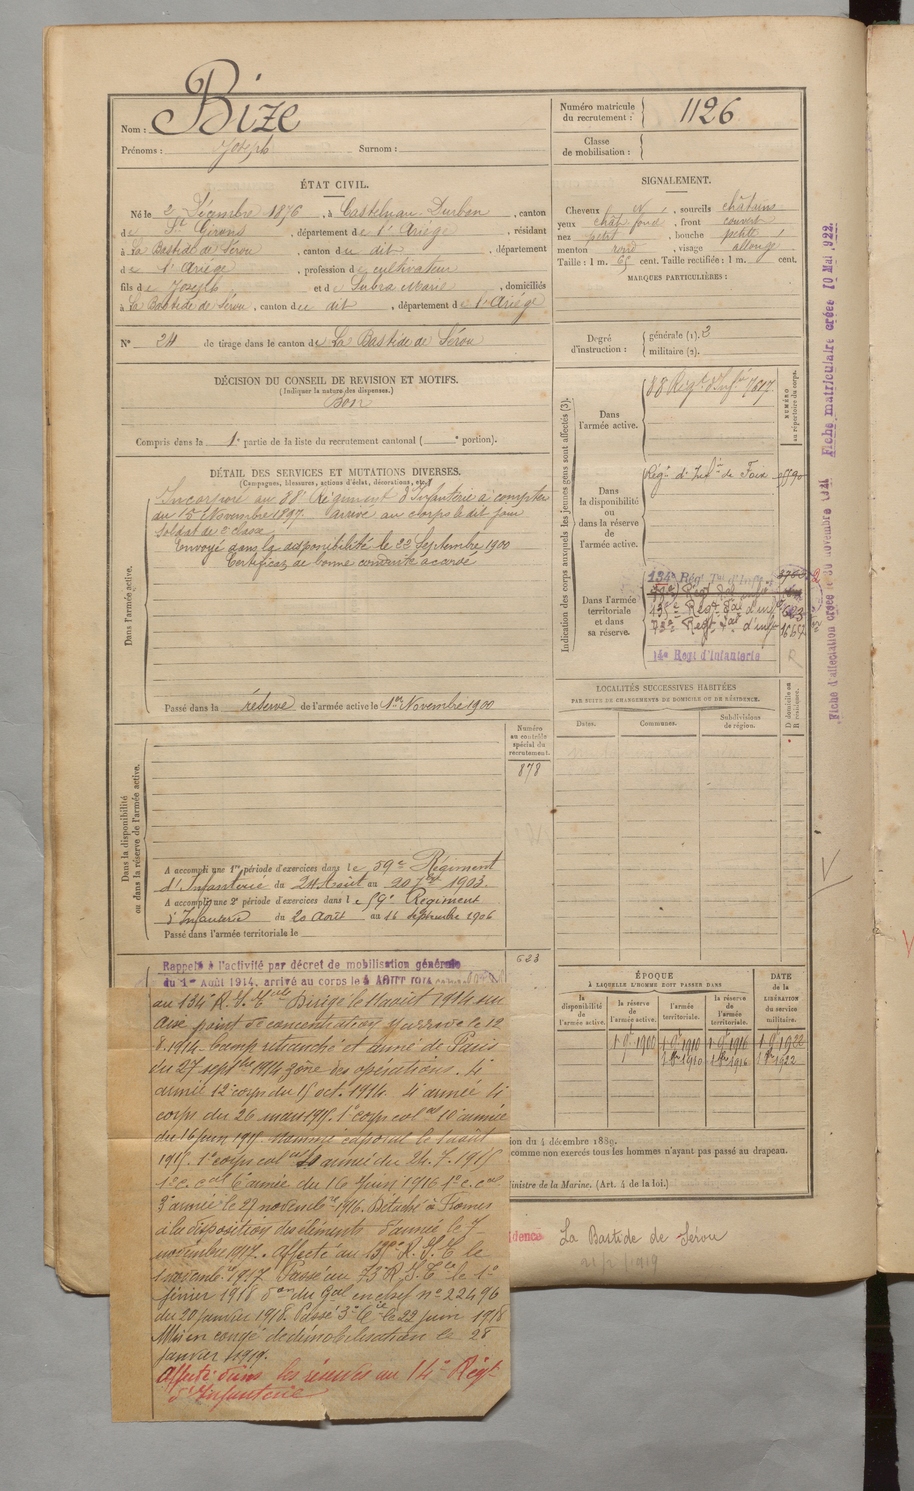 Nom : Bize
Prénoms : Joseph Surnom :
ÉTAT CIVIL.
Né le 2 Décembre 1876, à Castelnau Durban, canton
de St Girons, département de l'Ariège, résidant
à La Bastide de Sérou, canton du dit, département
de l'Ariège, profession de cultivateur
fils de Joseph et de Subra Marie, domiciliés
à La Bastide de Sérou, canton du dit, département de l'Ariège
N° 24 de tirage dans le canton de La Bastide de Sérou
DÉCISION DU CONSEIL DE REVISION ET MOTIFS.
(Indiquer la nature des dispenses.)
Bon
Compris dans la 1e partie de la liste du recrutement cantonal ( e portion).
DÉTAIL DES SERVICES ET MUTATIONS DIVERSES.
(Campagnes, blessures, actions d'éclat, décorations, etc.)
Dans l'armée active.
Incorporé au 88e Régiment d'Infanterie à compter
du 15 Novembre 1897 arrivé au Corps le dit jour
soldat de 2e classe
Envoyé dans la disponibilité le 22 Septembre 1900
Certificat de bonne conduite accordé
Passé dans la réserve de l'armée active le 1er Novembre 1900
Dans la disponibilité
ou dans la réserve de l'armée active.
Numéro
au contrôle
spécial du
recrutement.
878
A accompli une 1re période d'exercices dans le 59e Régiment
d'Infanterie du 24 Août au 20 7bre 1903
A accompli une 2e période d'exercices dans le 59e Régiment
d'Infanterie du 20 Août au 16 septembre 1906
Passé dans l'armée territoriale le
633
Rappelé à l'activité par décret de mobilisation générale
du 1er Août 1914, arrivé au corps le AOUT 1914
au 134e R. I. Tle Dirigé le 11 août 1914 sur
point de concentration y arrive le 12
8.1914. Camp retranché et armée de Paris
du 27 septbre 1914 zone des opérations. 4e
armée 12e corps du 15 oct. 1914. 4e armée
corps du 26 mars 1915. 1e corps cal 10e armée
du 16 juin 1915 nommé caporal le août
1915. 1e corps cal armée du 24.7.1915
1e c. cal 6e armée du 16 juin 1916 1e c. cal
3e armée le 27 novembre 1916. Détaché à
à la disposition des éléments d'armée le 7
novembre 1917. affecté au R. I. T. le
1 novembre 1917 Passé au 73e R. I. T. le 1er
février 1918 Don du Gal en chef n° 22496
du 20 janvier 1918. Passé 3e Cie le 22 juin 1918
Mis en congé de démobilisation le 28
janvier 1919.
affecté dans les réserves au 14e Régt
d'Infanterie
Numéro matricule
du recrutement : 1126
Classe
de mobilisation :
SIGNALEMENT.
Cheveux N, sourcils châtains
yeux chât foncé, front couvert
nez petit, bouche petite
menton rond, visage allongé
Taille : 1 m. 65 cent. Taille rectifiée : 1 m. cent.
MARQUES PARTICULIÈRES :
Degré
d'instruction :
générale (1). 2
militaire (2).
Indication des corps auxquels les jeunes gens sont affectés (3).
NUMÉRO
au répertoire du corps.
Dans
l'armée active.
88 Régt d'Infie 7617
Dans
la disponibilité
ou
dans la réserve
de
l'armée active.
Régt d'Infie de Foix
Dans l'armée
territoriale
et dans
sa réserve.
134e Régt Tal d'Infie
Régt Tal d'infie
73e Régt Tal d'infie
14e Regt d'Infanterie
LOCALITÉS SUCCESSIVES HABITÉES
PAR SUITE DE CHANGEMENTS DE DOMICILE OU DE RÉSIDENCE.
Dates. Communes. Subdivisions
de région.
D. domicile ou
R. résidence.
ÉPOQUE
À LAQUELLE L'HOMME DOIT PASSER DANS
DATE
DE LA
LIBÉRATION
du service
militaire.
la
disponibilité
de
l'armée active.
la réserve
de
l'armée active.
l'armée
territoriale.
la réserve
de
l'armée
territoriale.
1 9bre 1900 1 9bre 1910 1 9bre 1916 1 9bre 1922
1 8bre 1910 1 8bre 1916 1 8bre 1922
ion du 4 décembre 1889.
comme non exercés tous les hommes n'ayant pas passé au drapeau.
inistre de la Marine. (Art. 4 de la loi.)
idence La Bastide de Sérou
Fiche d'affectation créée novembre 1921 Fiche matriculaire créée 10 Mai 1922.